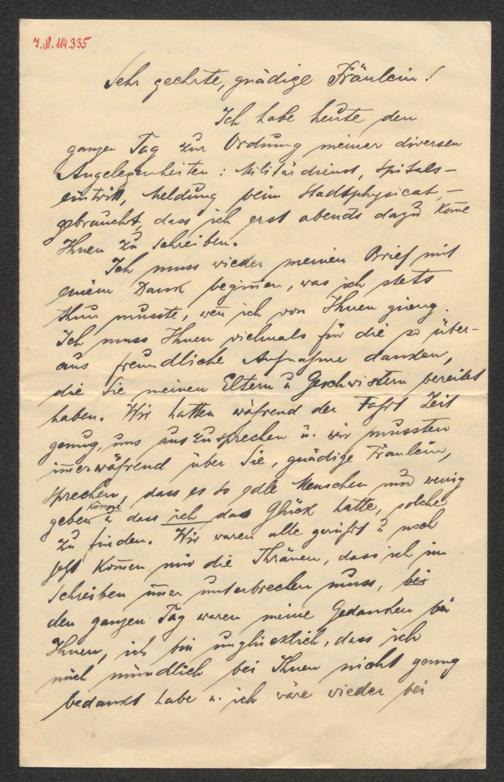 J.N. 114.335
Sehr geehrte, gnädige Fräulein!
Ich habe heute den
ganzen Tag zur Ordnung meiner diversen
Angelegenheiten: Militärdienst, Spitals-
eintritt, Meldung beim Stadtphysicat, –
gebraucht, dass ich erst abends dazu kome
Ihnen zu schreiben.
Ich muss wieder meinen Brief mit
einem Dank beginnen, was ich stets
thun musste, wen ich von Ihnen gieng.
Ich muss Ihnen vielmals für die so über-
aus freundliche Aufnahme danken,
die Sie meinen Eltern u Geschwistern bereitet
haben. Wir hatten während der Fahrt Zeit
genug, uns auszusprechen u. wir mussten
imerwährend über Sie, gnädige Fräulein,
sprechen, dass es so edle Menschen nur wenig
geben könne u dass ich das Glück hatte, solche
zu finden. Wir waren alle gerührt u noch
jetzt komen mir die Thränen, dass ich im
Schreiben imer unterbrechen muss, bei
den ganzen Tag waren meine Gedanken bei
Ihnen, ich bin unglücklich, dass ich
mich mündlich bei Ihnen nicht genug
bedankt habe u. ich wäre wieder bei